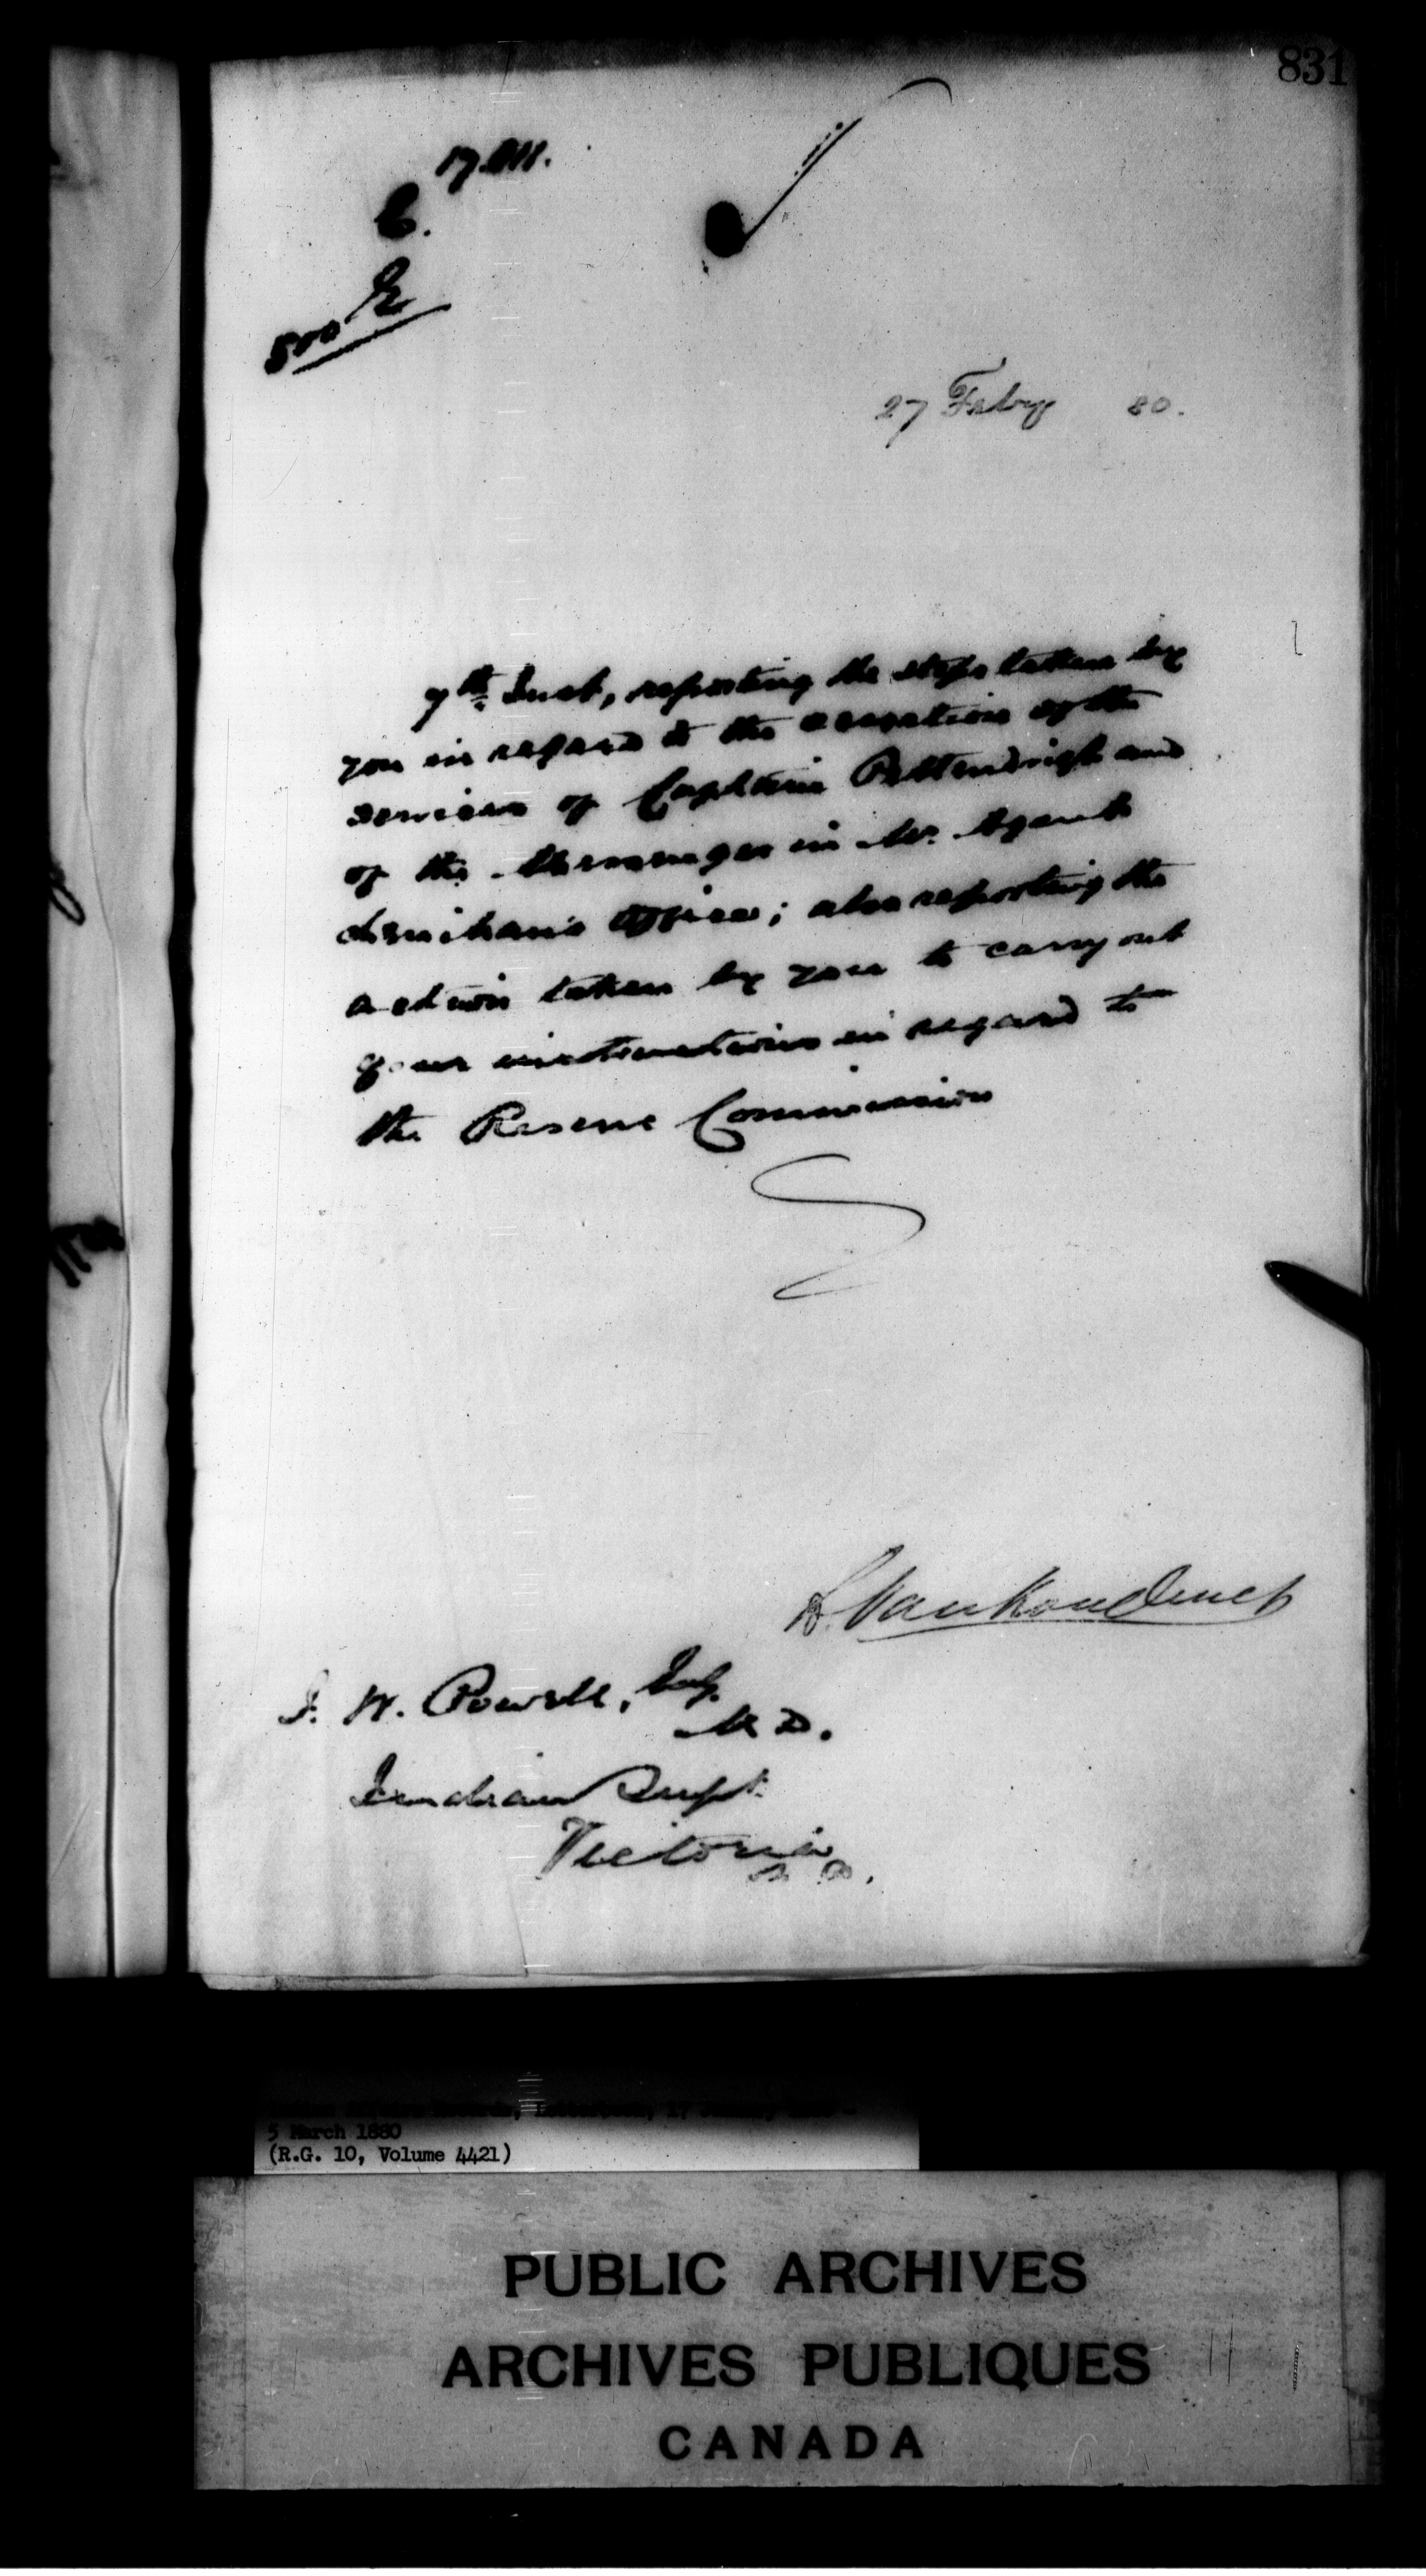 831
C.
500
27 Febry 80.
7th Inst, reporting the steps taken by
you in regard to the cessation of the
services of Captain Pittendrigh and
of the Messenger in Mr. Agent
Lenihan's Office; also reporting the
action taken by you to carry out
your instructions in regard to
the Reserve Commission
L. VanKoughnet
I. W. Powell, Esq.
M D.
Indian Supt.
Victoria
B. C.
5 March 1880
(R.G. 10, Volume 4421)
PUBLIC ARCHIVES
ARCHIVES PUBLIQUES
CANADA